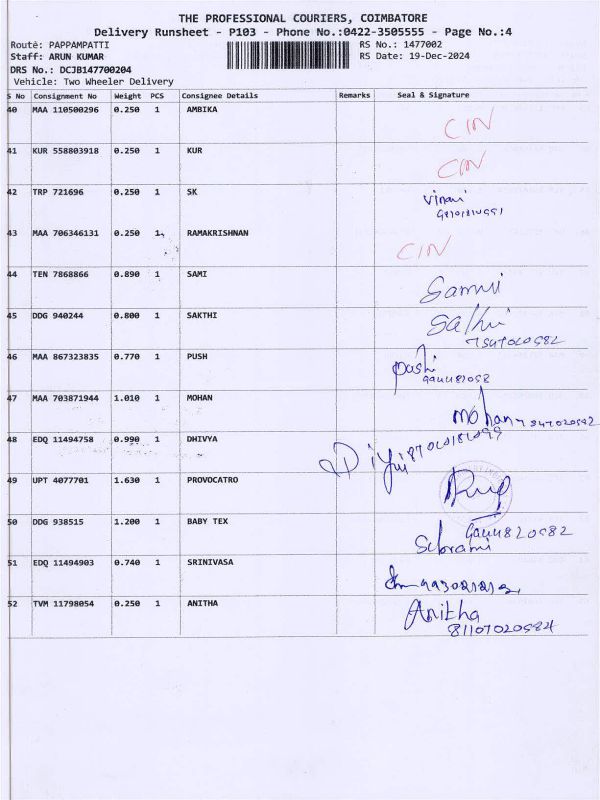 THE PROFESSIONAL COURIERS, COIMBATORE
Delivery Runsheet - P103 - Phone No.:0422-3505555 - Page No.:4
Route: PAPPAMPATTI RS No.: 1477002
Staff: ARUN KUMAR RS Date: 19-Dec-2024
DRS No.: DCJB147700204
Vehicle: Two Wheeler Delivery
S No Consignment No Weight PCS Consignee Details Remarks Seal & Signature
40 MAA 110500296 0.250 1 AMBIKA CIN
41 KUR 558803918 0.250 1 KUR CIN
42 TRP 721696 0.250 1 SK
43 MAA 706346131 0.250 1 RAMAKRISHNAN CIN
44 TEN 7868866 0.890 1 SAMI
45 DDG 940244 0.800 1 SAKTHI
46 MAA 867323835 0.770 1 PUSH
47 MAA 703871944 1.010 1 MOHAN Mohan
48 EDQ 11494758 0.990 1 DHIVYA
49 UPT 4077701 1.630 1 PROVOCATRO
50 DDG 938515 1.200 1 BABY TEX
51 EDQ 11494903 0.740 1 SRINIVASA
52 TVM 11798054 0.250 1 ANITHA Anitha